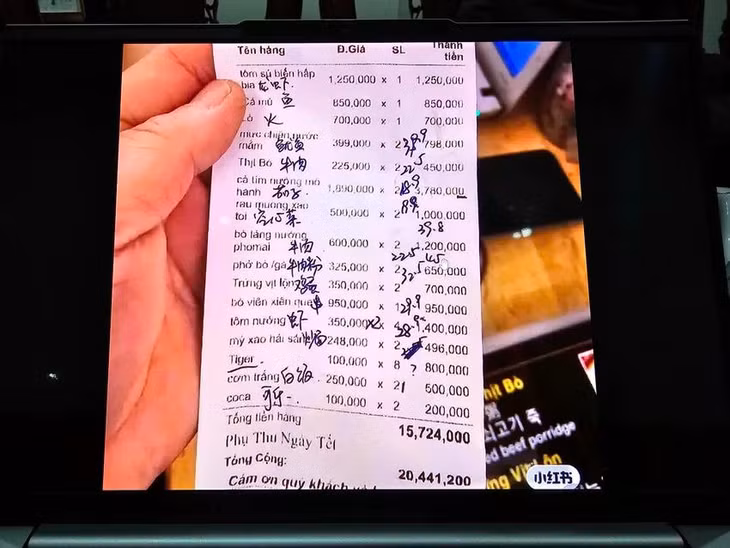 Tên hàng Đ.Giá SL Thành tiền
tôm sú biển hấp
bia 龙虾 1,250,000 x 1 1,250,000
Cá mú 鱼 850,000 x 1 850,000
火 700,000 x 1 700,000
mực chiên nước
mắm 鱿鱼 399,000 x 2 798,000
Thịt Bò 牛肉 225,000 x 2 450,000
cà tím nướng mỡ
hành 茄子 1,890,000 x 2 3,780,000
rau muống xào
tỏi 500,000 x 2 1,000,000
39.8
bò tảng nướng
phomai 牛肉 600,000 x 2 1,200,000
phở bò /gà 牛肉粉 325,000 x 2 650,000
Trứng vịt lộn 350,000 x 2 700,000
bò viên xiên que 串 950,000 x 1 950,000
tôm nướng 虾 350,000 x 4 1,400,000
mỳ xào hải sản 248,000 x 2 496,000
Tiger 100,000 x 8 ? 800,000
cơm trắng 白饭 250,000 x 2 500,000
coca 可乐 100,000 x 2 200,000
Tổng tiền hàng 15,724,000
Phụ Thu Ngày Tết
Tổng Cộng: 20,441,200
Cảm ơn quý khách
Thịt Bò
粥
쇠고기 죽
beef porridge
小红书